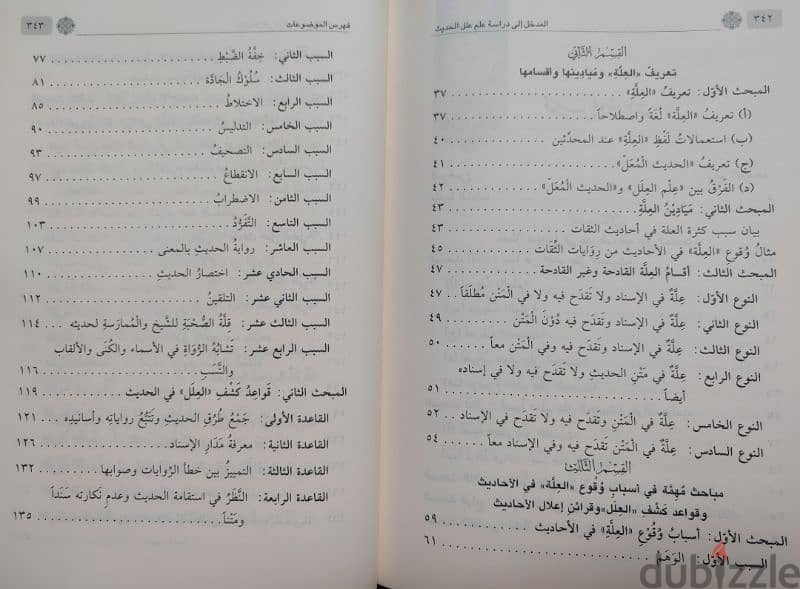 ٣٤٢
المدخل إلى دراسة علم علل الحديث
القِسْمُ الثَّانِي
تعريف «العِلَّة» وَمَيادِينها وأقسامها
المبحث الأوّل: تعريفُ «العِلَّةِ» ٣٧
(أ) تعريفُ «العِلَّة» لُغَةً واصطلاحاً ٣٧
(ب) استعمالاتُ لَفْظِ «العِلَّةِ» عند المحدِّثين ٤٠
(ج) تعريفُ «الحديث الْمُعَلّ» ٤١
(د) الفَرْقُ بين «عِلْم العِلَل» و«الحديث الْمُعَلّ» ٤٢
المبحث الثاني: مَيَادِيْنُ العِلَّةِ ٤٣
بيان سبب كثرة العلة في أحاديث الثقات ٤٣
مثالُ وُقوع «العِلَّة» في الأحاديث من رِوَايات الثِّقَات ٤٥
المبحث الثالث: أقسامُ العِلَّة القادحة وغير القادحة ٤٧
النوع الأوّل: عِلَّةٌ في الإسناد ولا تَقدَح فيه ولا في الْمَتْن مُطلَقاً ٤٧
النوع الثاني: عِلَّةٌ في الإسناد وتَقدَح فيه دُوْنَ الْمَتْن ٤٩
النوع الثالث: عِلَّةٌ في الإسناد وتَقدَح فيه وفي الْمَتْن معاً ٥٠
النوع الرابع: عِلَّةٌ في مَتْنِ الحديثِ ولا تَقْدَح فيه ولا في إسناده
أيضاً ٥١
النوع الخامس: عِلَّةٌ في الْمَتْنِ وتَقدَح فيه ولا تَقدَح في الإسناد ٥٢
النوع السادس: عِلَّةٌ في الْمَتْن تَقدَح فيه وفي الإسناد معاً ٥٤
القِسْمُ الثَّالِثُ
مباحث مُهِمَّة في أسبابِ وُقُوع «العِلَّة» في الأحاديث
وقواعد كَشْفِ «العِلَل» وقرائنِ إعلال الأحاديث
المبحث الأوّل: أسبابُ وُقُوْعِ «العِلَّةِ» في الأحاديث ٥٩
السبب الأوّل: الوَهَمُ ٦١
فهرس الموضوعات
٣٤٣
السبب الثاني: خِفَّةُ الضَّبْطِ ٧٧
السبب الثالث: سُلُوْكُ الْجَادَّة ٨١
السبب الرابع: الاختلاطُ ٨٥
السبب الخامس: التدليسُ ٩٠
السبب السادس: التصحيفُ ٩٣
السبب السابع: الانقطاعُ ٩٧
السبب الثامن: الاضطرابُ ٩٩
السبب التاسع: التَّفَرُّدُ ١٠٣
السبب العاشر: روايةُ الحديثِ بالمعنى ١٠٧
السبب الحادي عشر: اختصارُ الحديثِ ١١٠
السبب الثاني عشر: التلقينُ ١١٢
السبب الثالث عشر: قِلَّةُ الصُّحْبَةِ للشَّيخ والْمُمارسةِ لحديثه ١١٤
السبب الرابع عشر: تَشابُهُ الرُّوَاةِ في الأسماء والكُنَى والألقاب
والنَّسَبِ ١١٦
المبحث الثاني: قَواعِدُ كَشْفِ «العِلَل» في الحديث ١١٩
القاعدة الأولى: جَمْعُ طُرُقِ الحديثِ وتَتَبُّعُ رواياته وأسانيدِه ١٢١
القاعدة الثانية: معرفةُ مَدَار الإسناد ١٢٦
القاعدة الثالثة: التمييزُ بين خطأ الرِّوايات وصوابها ١٣٢
القاعدة الرابعة: النَّظَرُ في استقامة الحديث وعدمِ نَكارته سَنَداً
ومَتْناً ١٣٥
dubizzle